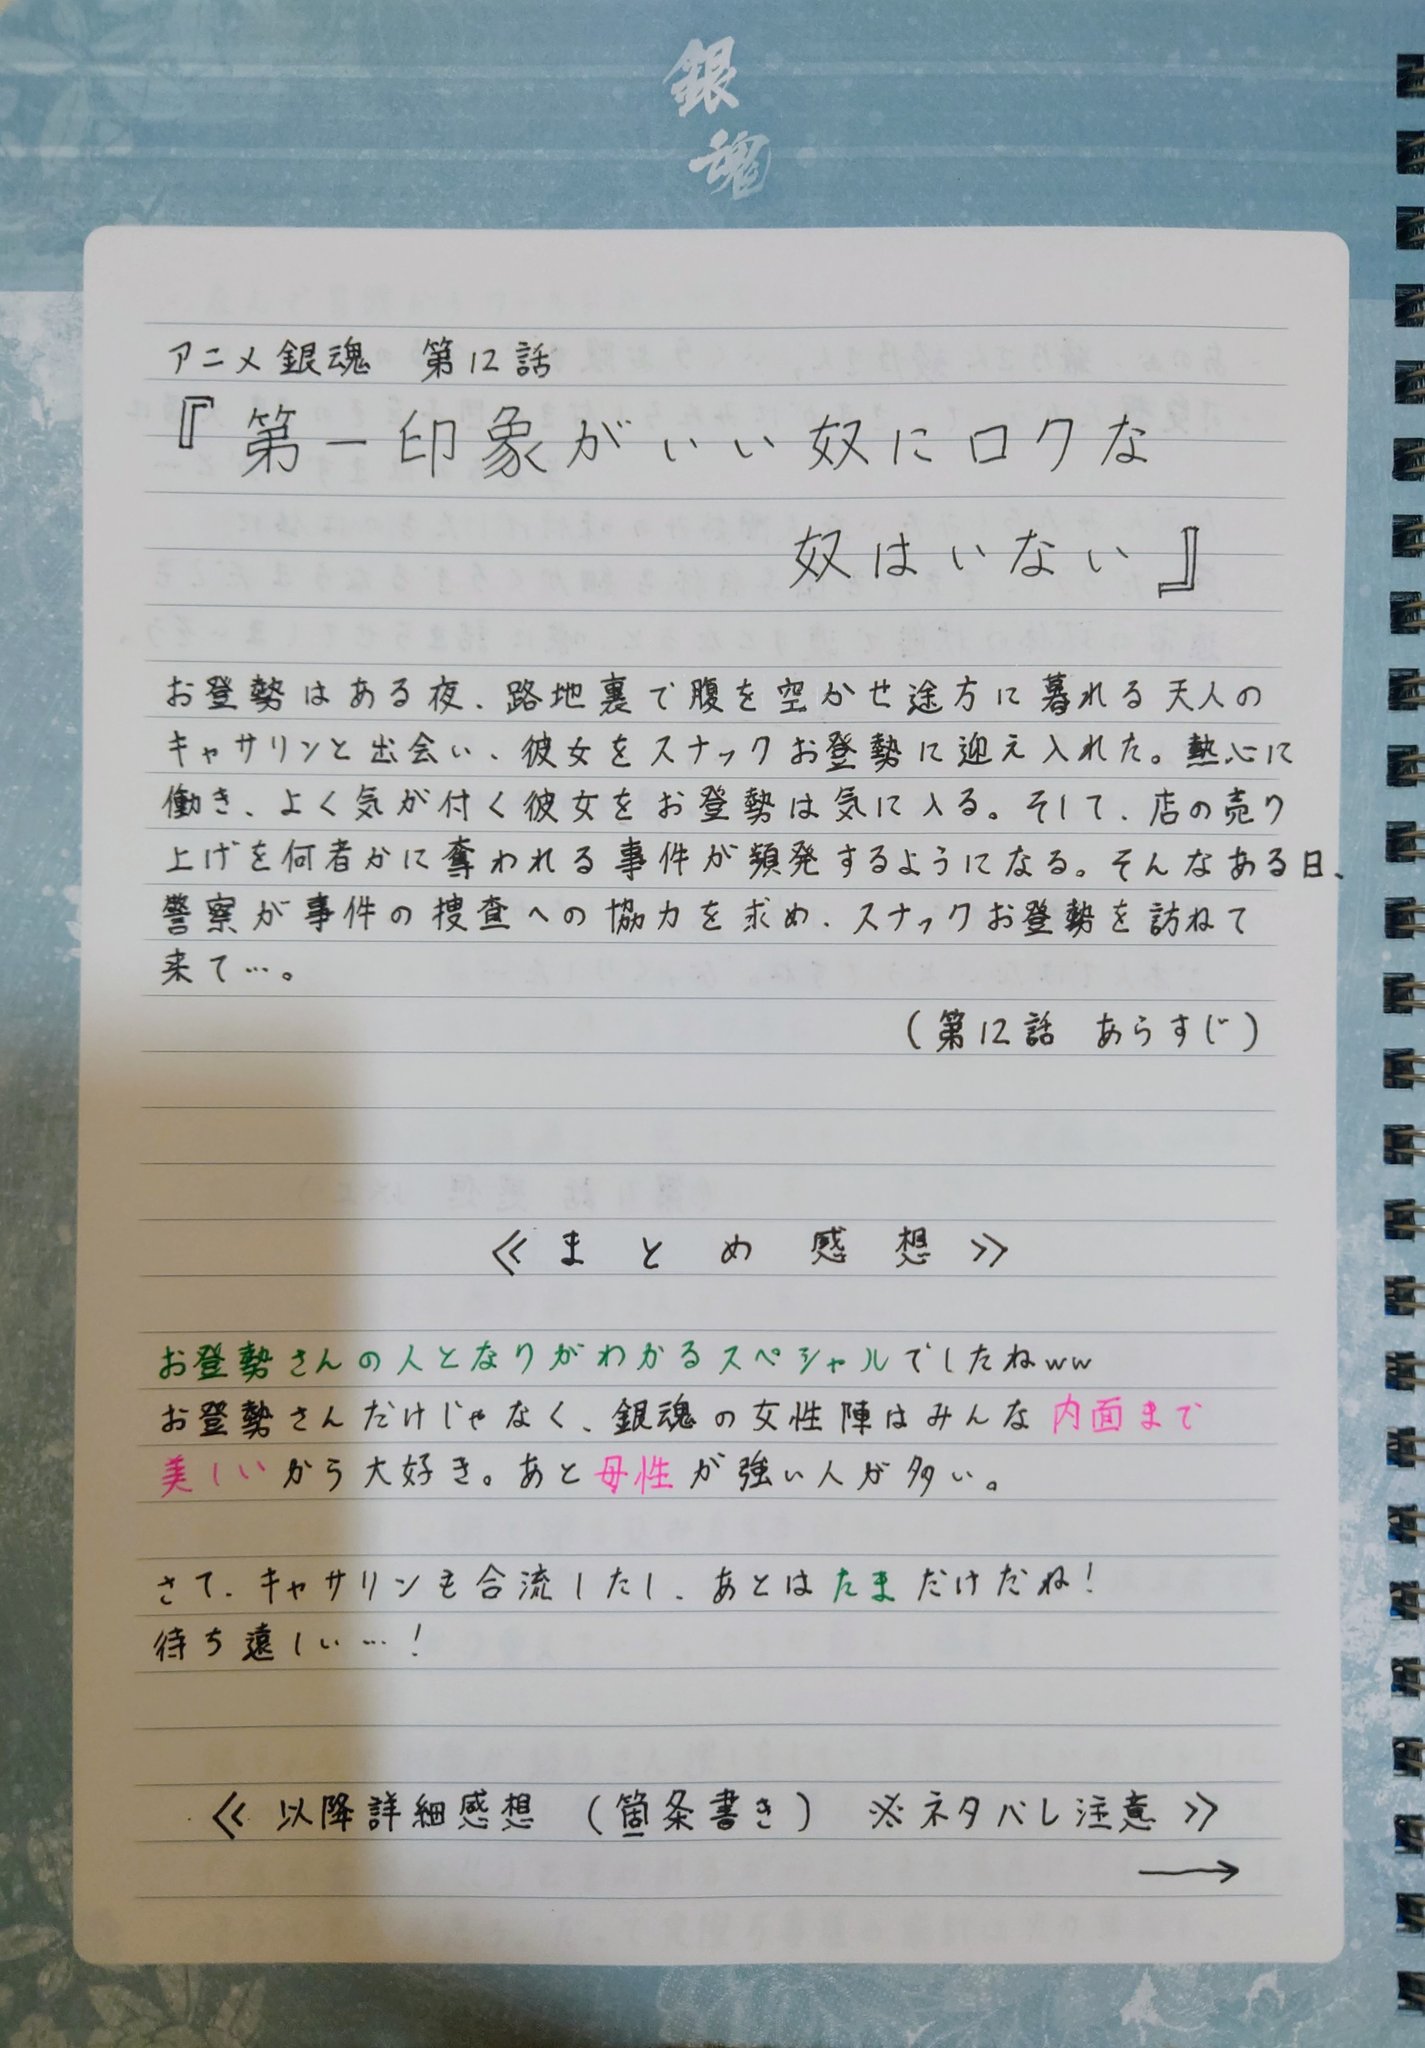 銀魂
アニメ銀魂 第12話
『第一印象がいい奴にロクな
奴はいない』
お登勢はある夜、路地裏で腹を空かせ途方に暮れる天人の
キャサリンと出会い、彼女をスナックお登勢に迎え入れた。熱心に
働き、よく気が付く彼女をお登勢は気に入る。そして、店の売り
上げを何者かに奪われる事件が頻発するようになる。そんなある日、
警察が事件の捜査への協力を求め、スナックお登勢を訪ねて
来て…。
(第12話 あらすじ)
≪まとめ感想≫
お登勢さんの人となりがわかるスペシャルでしたねww
お登勢さんだけじゃなく、銀魂の女性陣はみんな内面まで
美しいから大好き。あと母性が強い人が多い。
さて、キャサリンも合流したし、あとはたまだけだね!
待ち遠しい…!
≪以降詳細感想 (箇条書き) ※ネタバレ注意≫
→